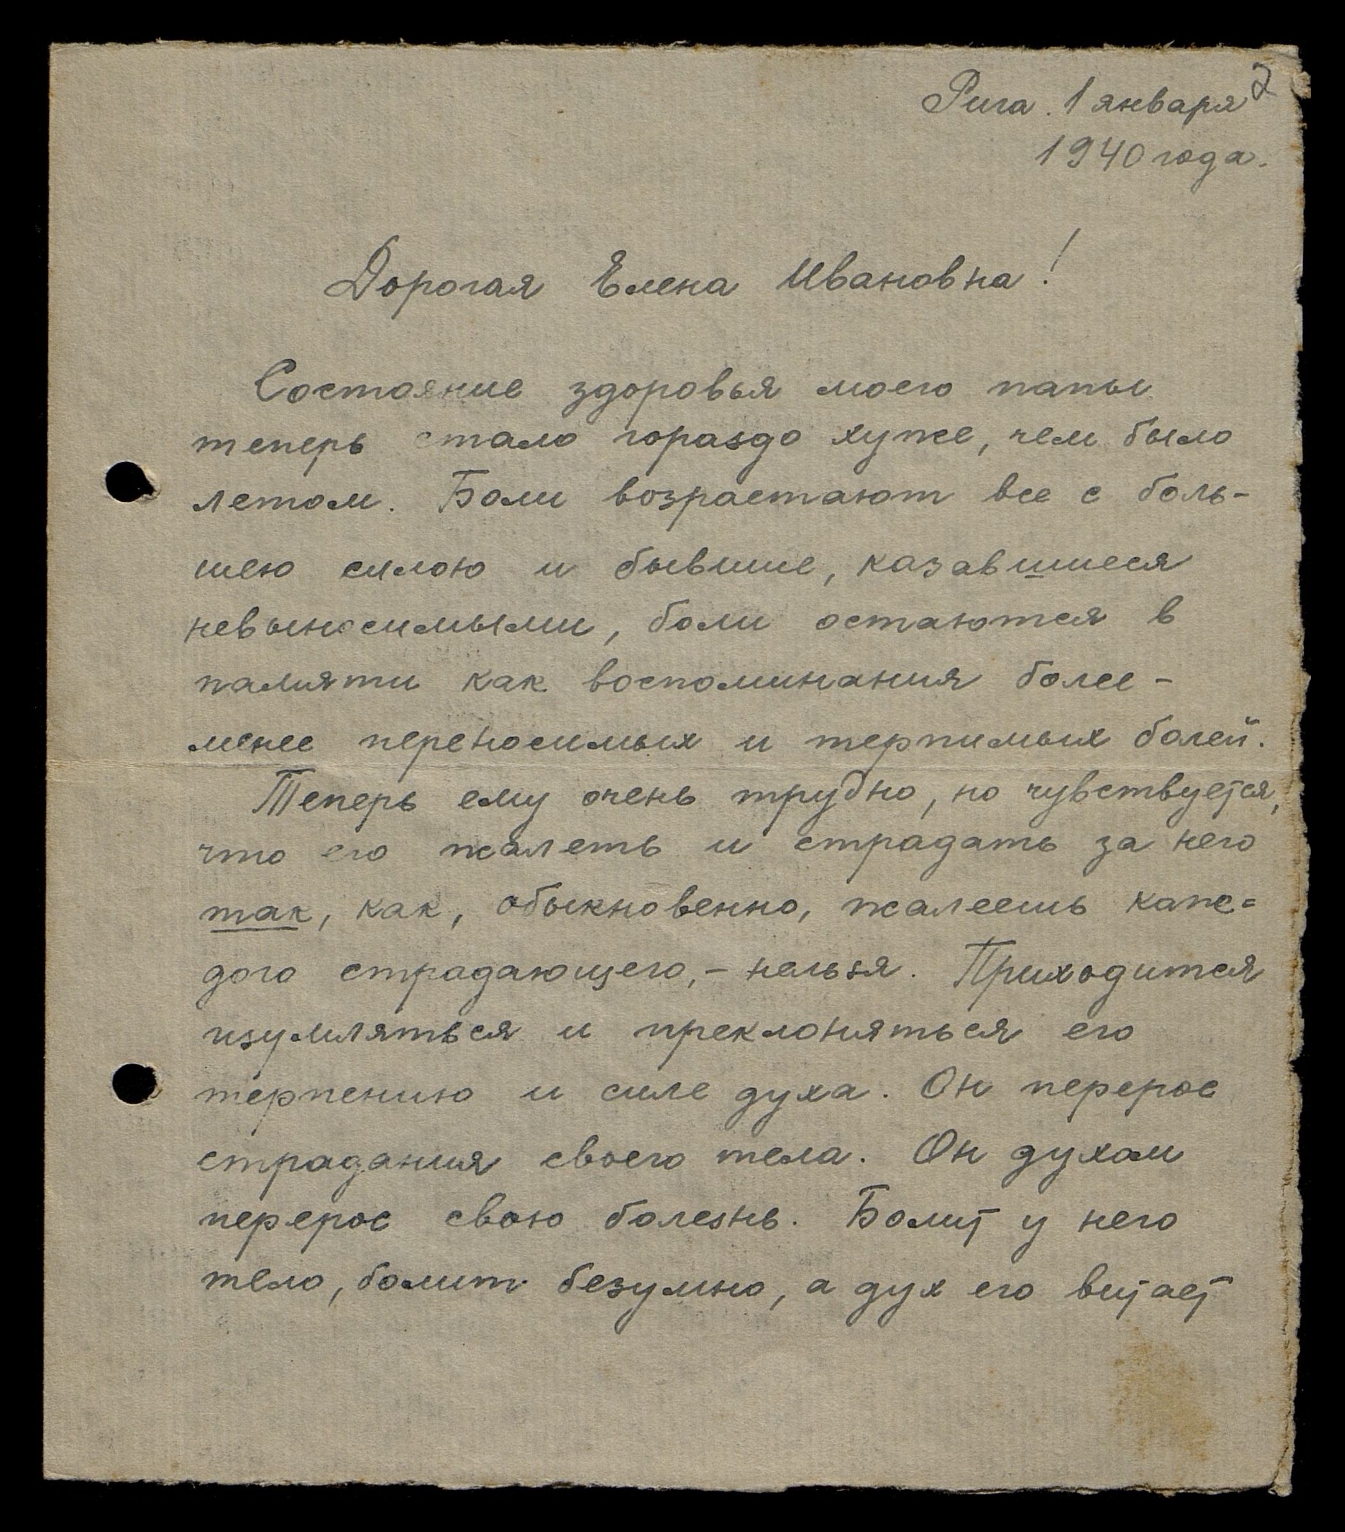 2
Рига. 1 января
1940 года.
Дорогая Елена Ивановна!
Состояние здоровья моего папы
теперь стало гораздо хуже, чем было
летом. Боли возрастают все с боль-
шею силою и бывшие, казавшиеся
невыносимыми, боли остаются в
памяти как воспоминания более-
менее переносимых и терпимых болей.
Теперь ему очень трудно, но чувствуется,
что его жалеть и страдать за него
так, как, обыкновенно, жалеешь каж=
дого страдающего, - нельзя. Приходится
изумляться и преклоняться его
терпению и силе духа. Он перерос
страдания своего тела. Он духом
перерос свою болезнь. Болит у него
тело, болит безумно, а дух его витает